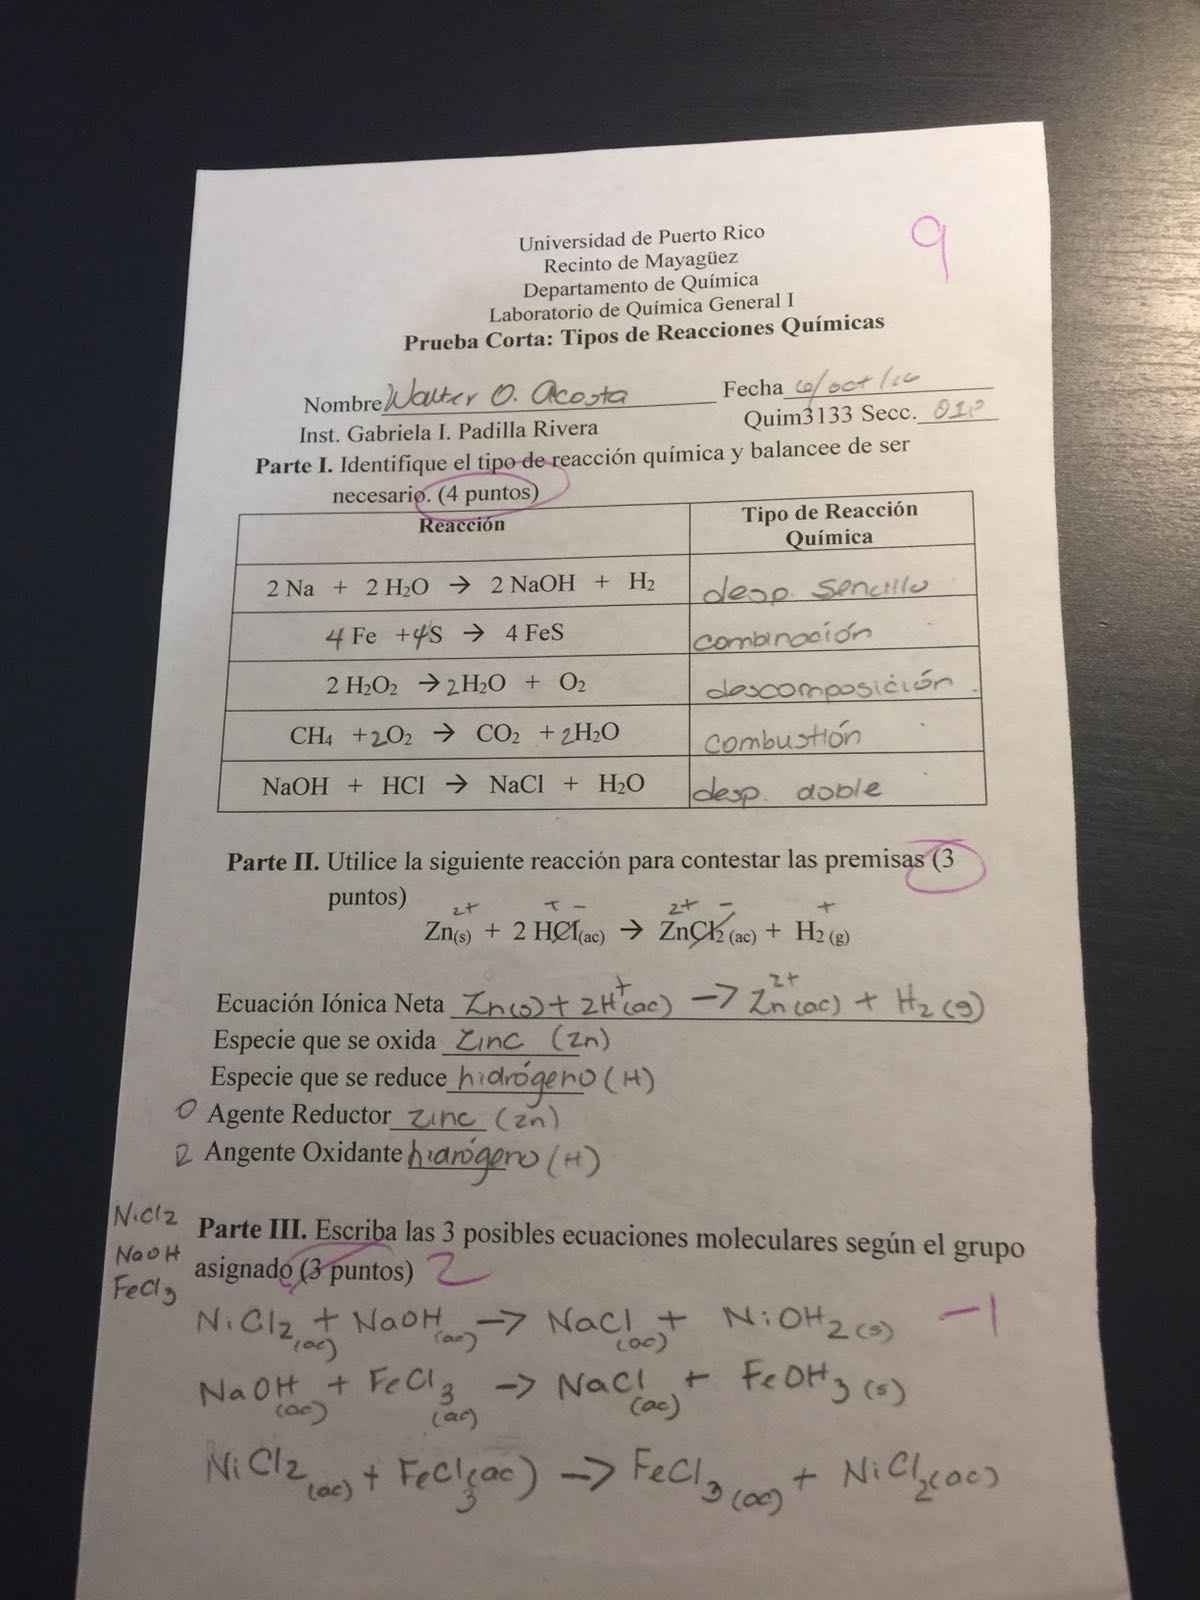 9
Universidad de Puerto Rico
Recinto de Mayagüez
Departamento de Química
Laboratorio de Química General I
Prueba Corta: Tipos de Reacciones Químicas
Nombre Walter O. Acosta Fecha 6/oct/16
Inst. Gabriela I. Padilla Rivera Quim3133 Secc.
Parte I. Identifique el tipo de reacción química y balancee de ser
necesario. (4 puntos)
Reacción Tipo de Reacción Química
2 Na + 2 H₂O → 2 NaOH + H₂ desp. sencillo
4 Fe + 4S → 4 FeS combinación
2 H₂O₂ → 2H₂O + O₂ descomposición.
CH₄ + 2O₂ → CO₂ + 2H₂O combustión
NaOH + HCl → NaCl + H₂O desp. doble
Parte II. Utilice la siguiente reacción para contestar las premisas (3
puntos)
2+ + - 2+ - +
Zn(s) + 2 HCl(ac) → ZnCl₂ (ac) + H₂ (g)
Ecuación Iónica Neta Zn(s) + 2H⁺(ac) → Zn²⁺(ac) + H₂(g)
Especie que se oxida zinc (Zn)
Especie que se reduce hidrógeno (H)
O Agente Reductor zinc (zn)
R Angente Oxidante hidrógeno (H)
NiCl2
NaOH
FeCl3
Parte III. Escriba las 3 posibles ecuaciones moleculares según el grupo
asignado (3 puntos) 2
NiCl₂(ac) + NaOH(ac) → NaCl(ac) + NiOH₂(s) -1
NaOH(ac) + FeCl₃(ac) → NaCl(ac) + FeOH₃(s)
NiCl₂(ac) + FeCl₃(ac) → FeCl₃(ac) + NiCl₂(ac)